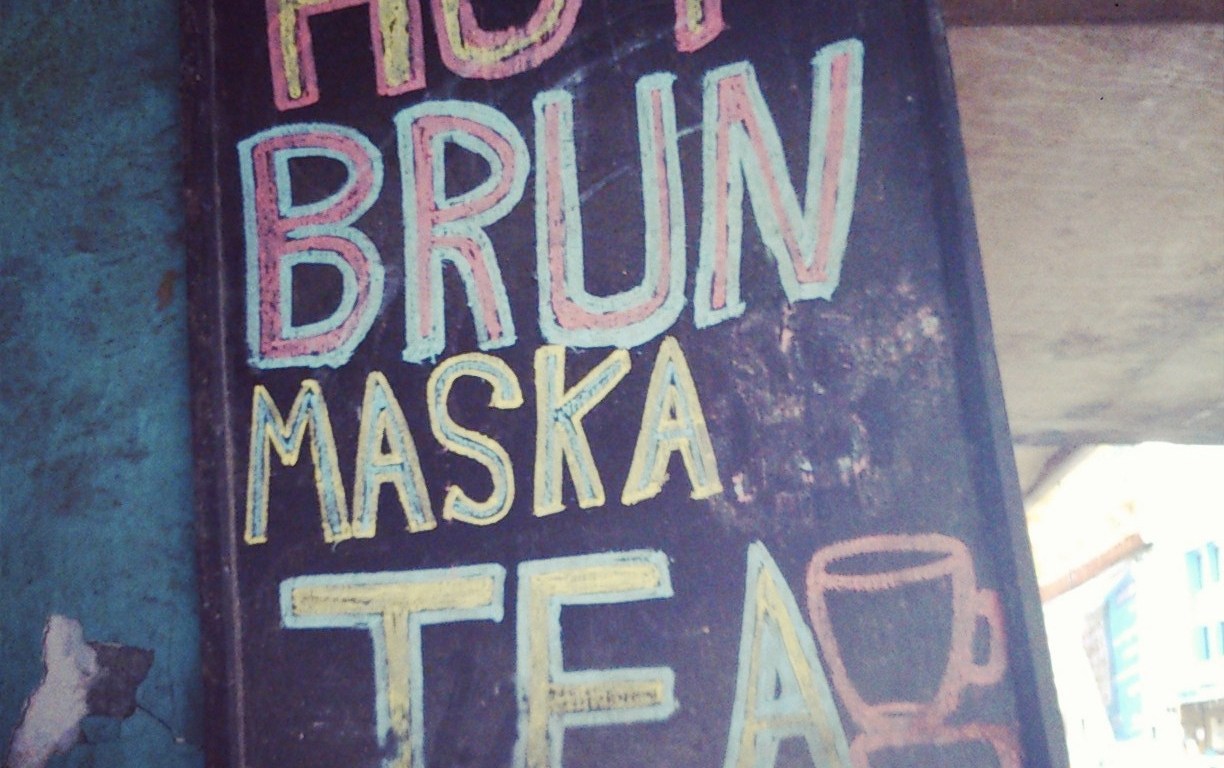 HOT
BRUN
MASKA
TEA